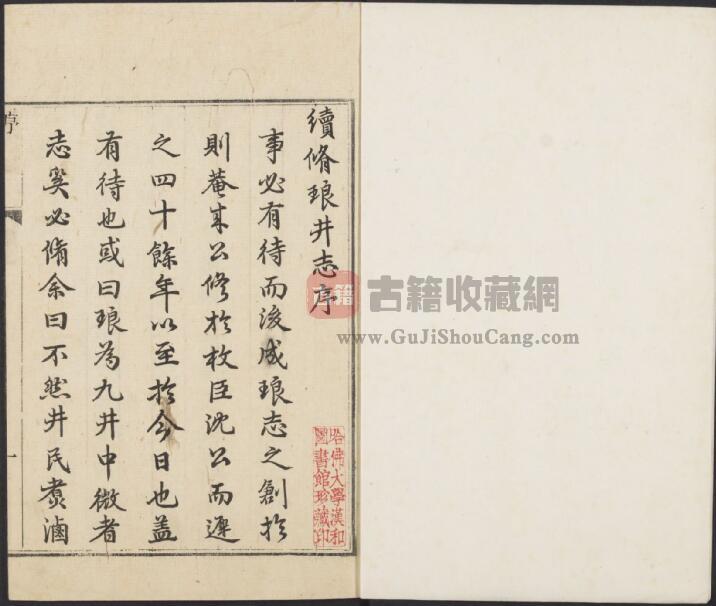 續脩琅井志序
事必有待而後成琅志之創於
則菴來公修於枚臣沈公而遲
之四十餘年以至於今日也蓋
有待也或曰琅為九井中微者
志奚必脩余曰不然井民煑滷
序
一
哈佛大學漢和
圖書館珍藏印
古籍
古籍收藏網
www.GuJiShouCang.com